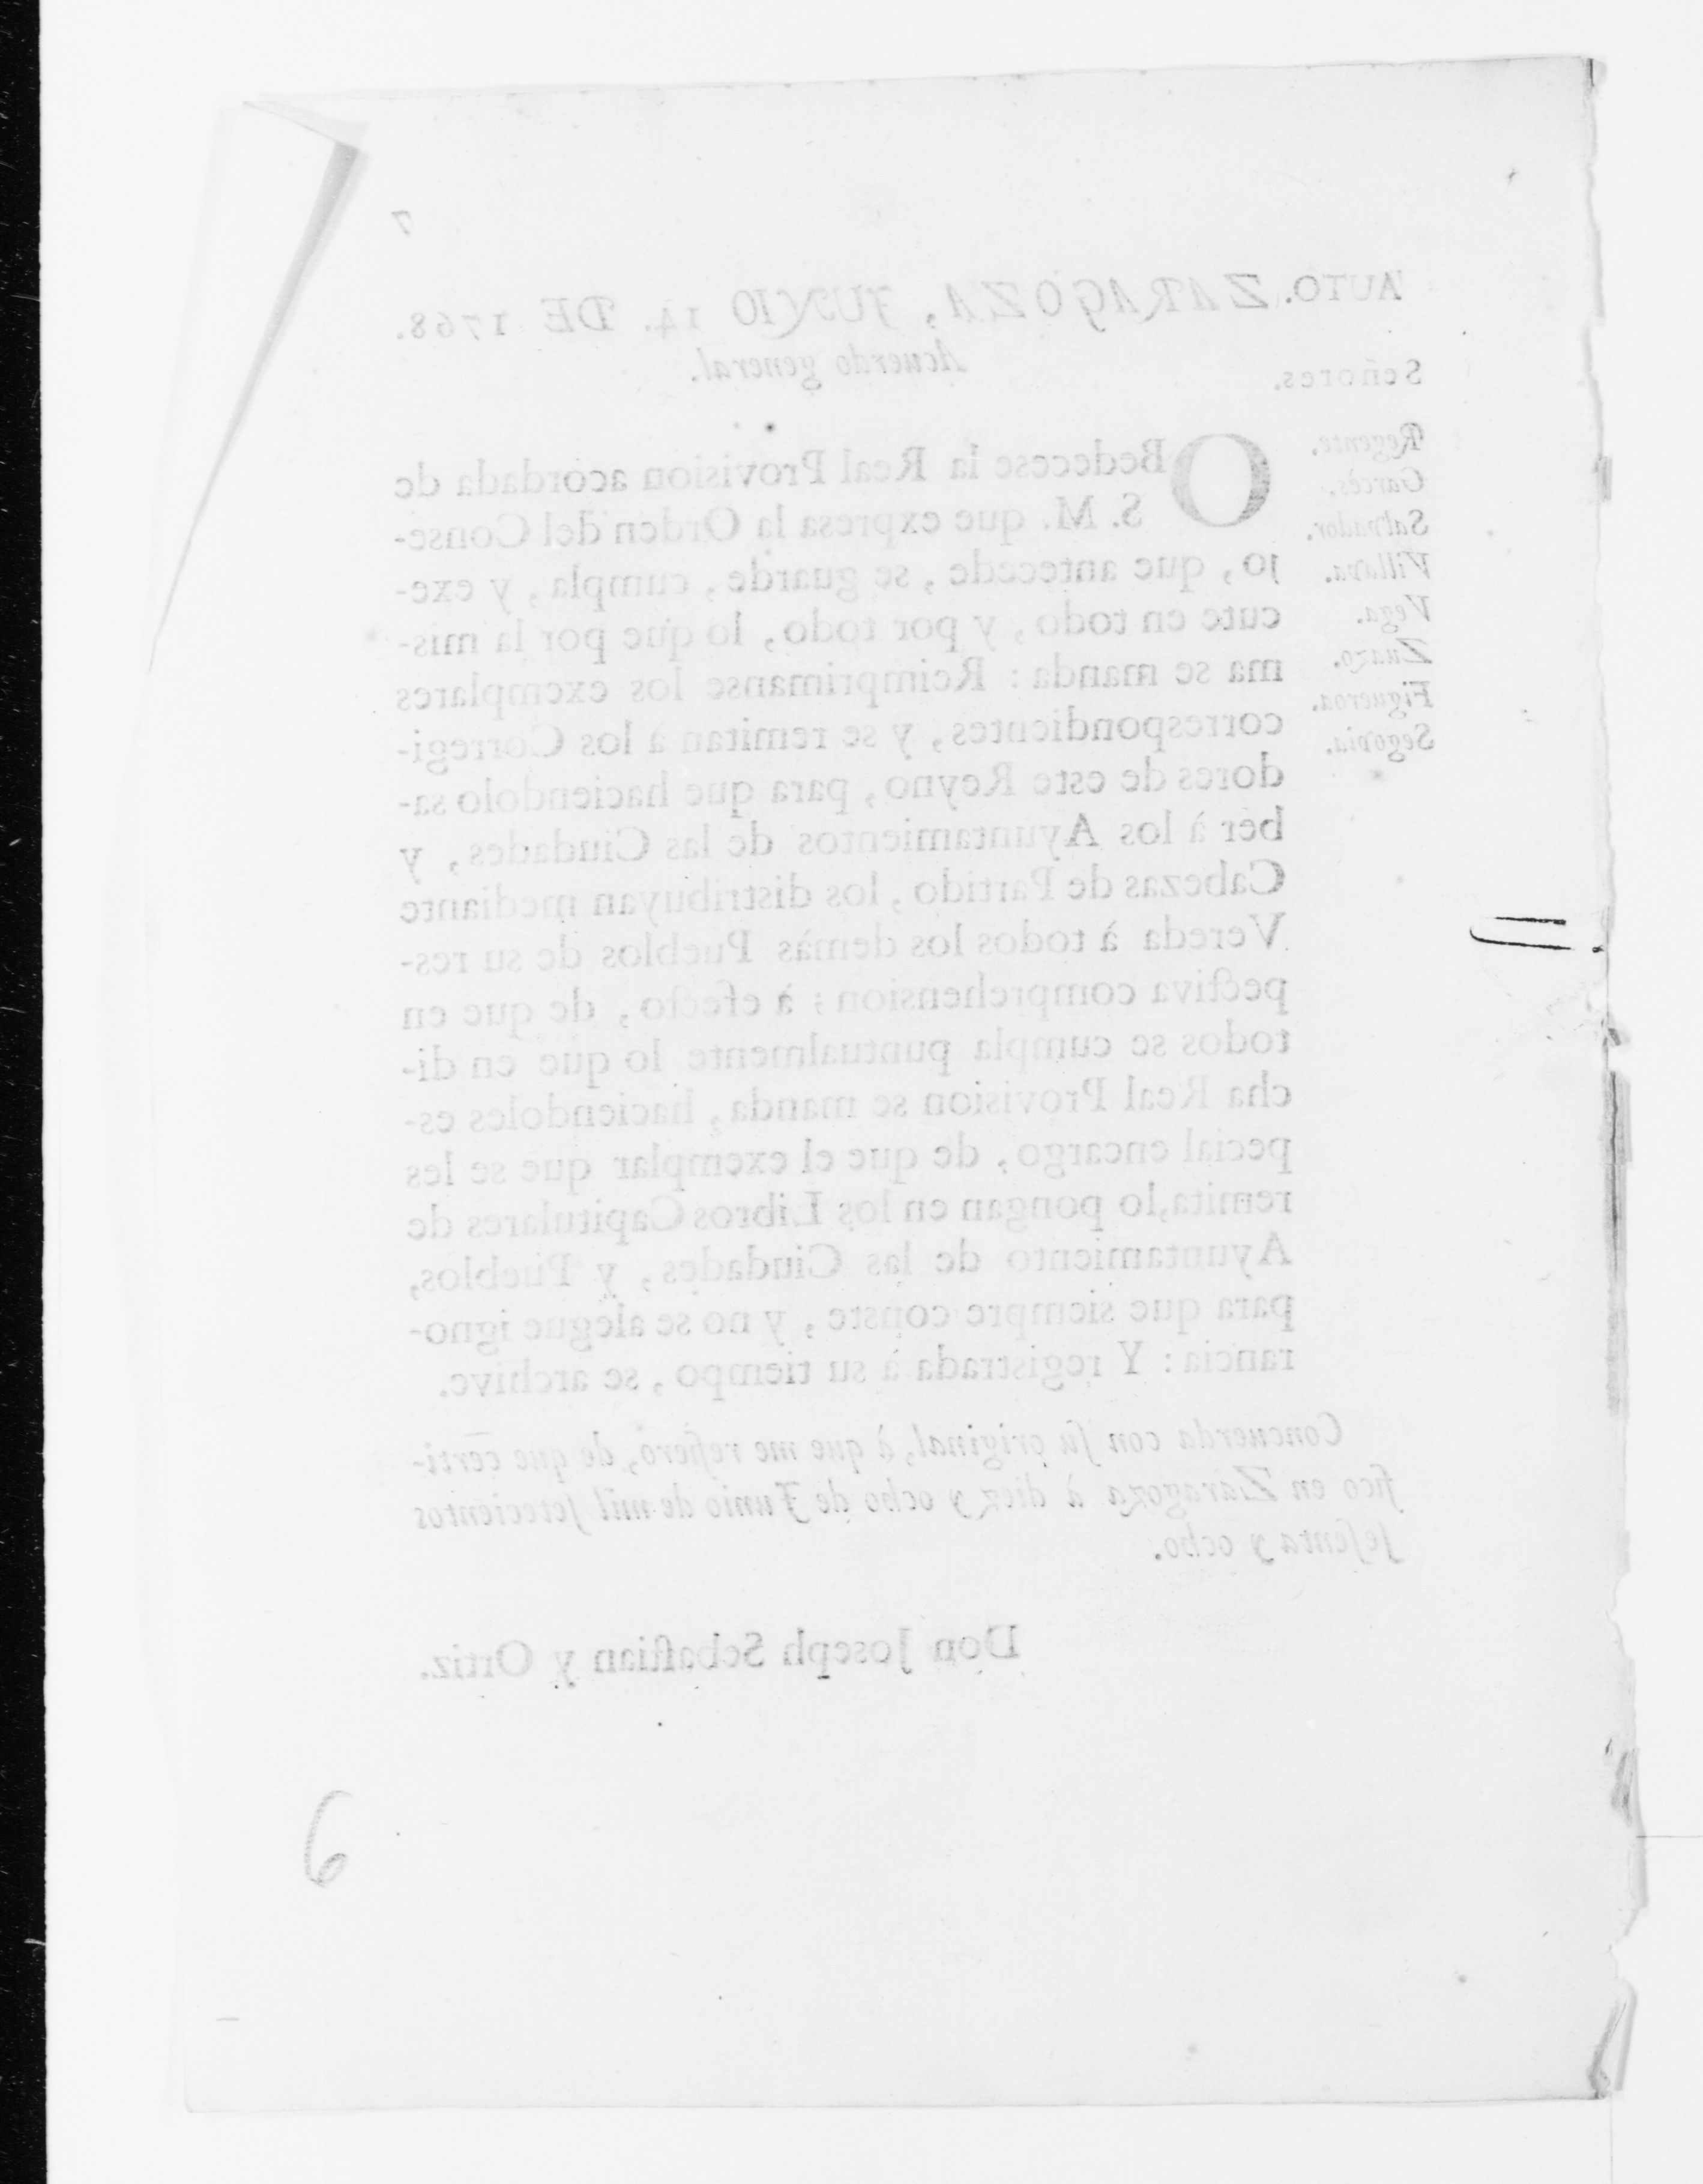 7
AUTO. ZARAGOZA, JUNIO 14. DE 1768.
Acuerdo general.
Señores.
Regente.
Garcès.
Salvador.
Villava.
Vega.
Zuazo.
Figueroa.
Segovia.
OBedecese la Real Provision acordada de
S. M. que expresa la Orden del Conse-
jo, que antecede, se guarde, cumpla, y exe-
cute en todo, y por todo, lo que por la mis-
ma se manda: Reimprimanse los exemplares
correspondientes, y se remitan à los Corregi-
dores de este Reyno, para que haciendolo sa-
ber à los Ayuntamientos de las Ciudades, y
Cabezas de Partido, los distribuyan mediante
Vereda à todos los demàs Pueblos de su res-
pectiva comprehension; à efecto, de que en
todos se cumpla puntualmente lo que en di-
cha Real Provision se manda, haciendoles es-
pecial encargo, de que el exemplar que se les
remita, lo pongan en los Libros Capitulares de
Ayuntamiento de las Ciudades, y Pueblos,
para que siempre conste, y no se alegue igno-
rancia: Y registrada à su tiempo, se archive.
Concuerda con ſu original, à que me refiero, de que certi-
fico en Zaragoza à diez y ocho de Junio de mil ſetecientos
ſeſenta y ocho.
Don Joseph Sebaſtian y Ortiz.
6